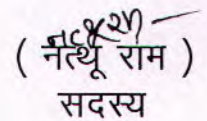 ( नत्थू राम )
सदस्य